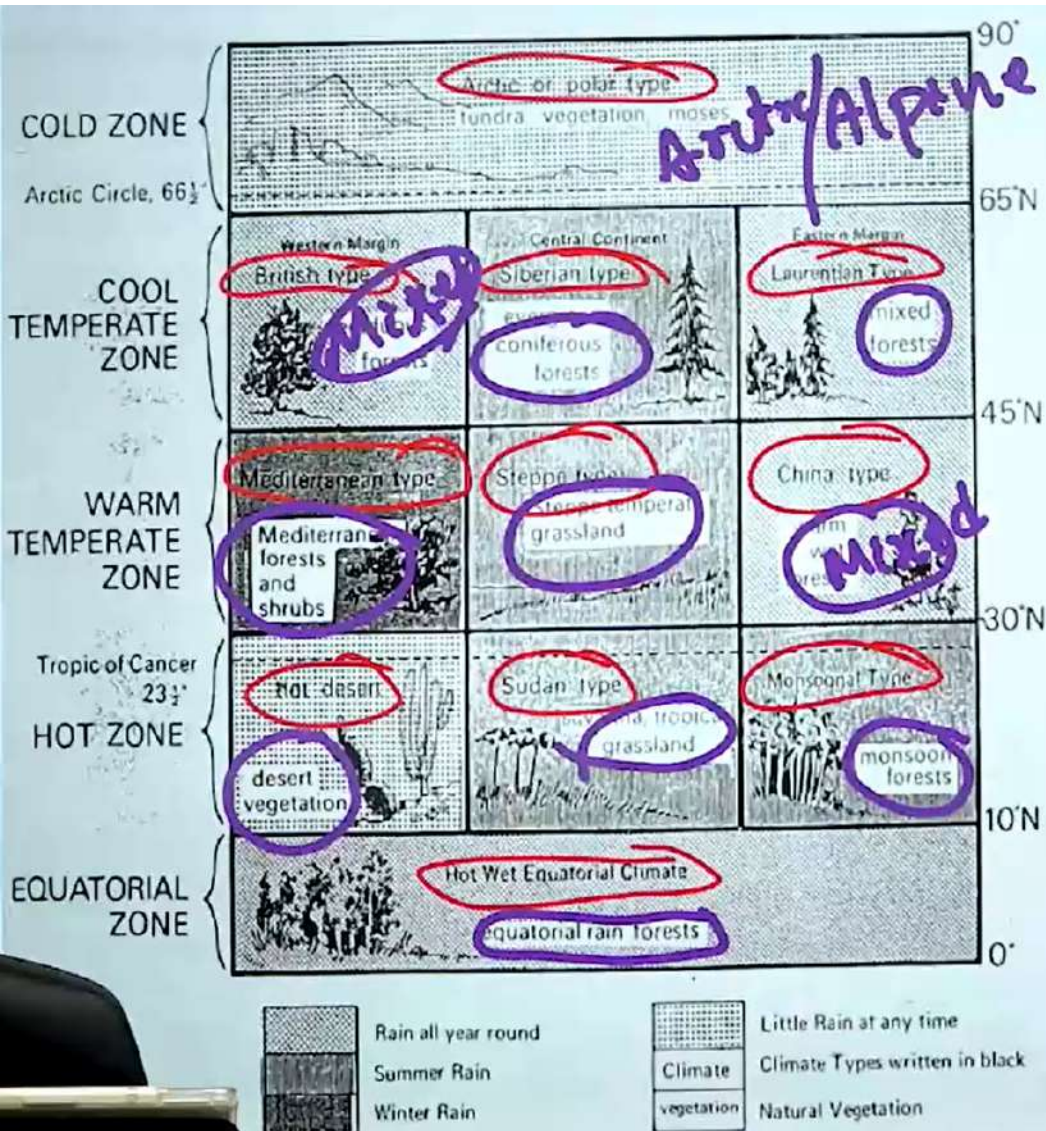 90°
COLD ZONE
Arctic or polar type
tundra vegetation, moses
Arctic/Alpine
Arctic Circle, 66½°
65°N
COOL
TEMPERATE
ZONE
Western Margin
British type
Mixed
forests
Central Continent
Siberian type
coniferous
forests
Eastern Margin
Laurentian Type
mixed
forests
45°N
WARM
TEMPERATE
ZONE
Mediterranean type
Mediterrane
forests
and
shrubs
Steppe type
Steppe temperat
grassland
China type
Mixed
30°N
Tropic of Cancer
23½°
HOT ZONE
hot desert
desert
vegetation
Sudan type
tropica
grassland
Monsoonal Type
monsoon
forests
10°N
EQUATORIAL
ZONE
Hot Wet Equatorial Climate
equatorial rain forests
0°
Rain all year round
Summer Rain
Winter Rain
Little Rain at any time
Climate
Climate Types written in black
vegetation
Natural Vegetation